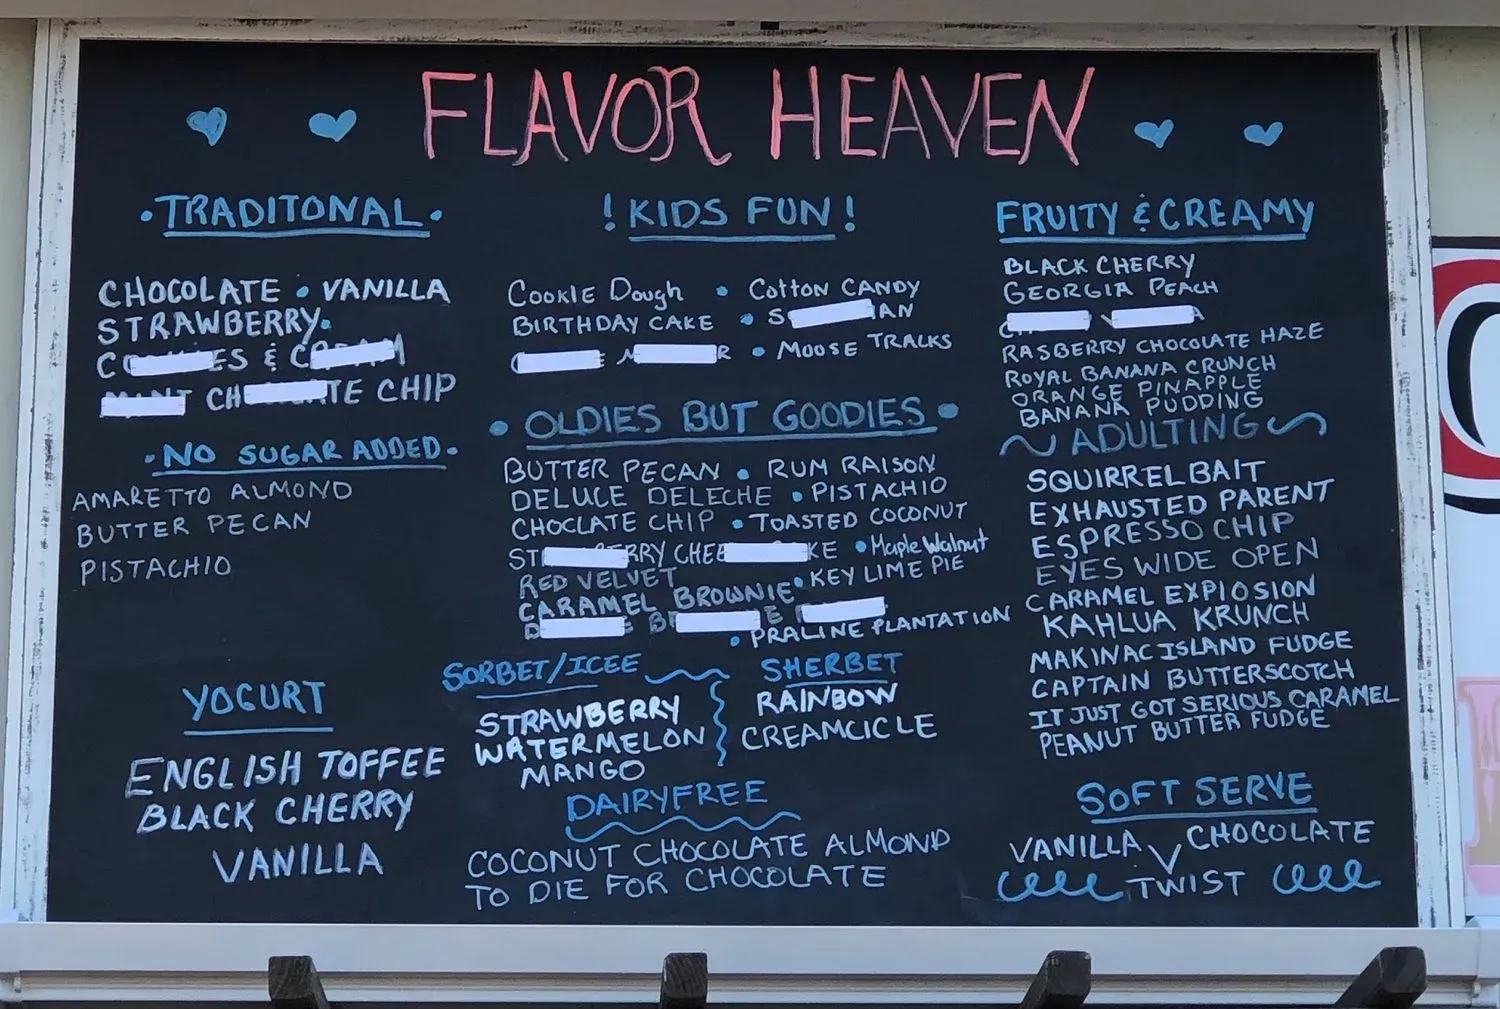 FLAVOR HEAVEN
•TRADITONAL•
CHOCOLATE • VANILLA
STRAWBERRY•
&
CHIP
•NO SUGAR ADDED•
AMARETTO ALMOND
BUTTER PECAN
PISTACHIO
YOGURT
ENGLISH TOFFEE
BLACK CHERRY
VANILLA
! KIDS FUN !
Cookie Dough • Cotton CANDY
BIRTHDAY CAKE •
• MOOSE TRACKS
• OLDIES BUT GOODIES •
BUTTER PECAN • RUM RAISON
DELUCE DELECHE • PISTACHIO
CHOCLATE CHIP • TOASTED COCONUT
• Maple Walnut
RED VELVET • KEY LIME PIE
CARAMEL BROWNIE
• PRALINE PLANTATION
SORBET/ICEE
STRAWBERRY
WATERMELON
MANGO
SHERBET
RAINBOW
CREAMCICLE
DAIRYFREE
COCONUT CHOCOLATE ALMOND
TO DIE FOR CHOCOLATE
FRUITY & CREAMY
BLACK CHERRY
GEORGIA PEACH
RASBERRY CHOCOLATE HAZE
ROYAL BANANA CRUNCH
ORANGE PINAPPLE
BANANA PUDDING
ADULTING
SQUIRREL BAIT
EXHAUSTED PARENT
ESPRESSO CHIP
EYES WIDE OPEN
CARAMEL EXPLOSION
KAHLUA KRUNCH
MAKINAC ISLAND FUDGE
CAPTAIN BUTTERSCOTCH
IT JUST GOT SERIOUS CARAMEL
PEANUT BUTTER FUDGE
SOFT SERVE
VANILLA CHOCOLATE
TWIST